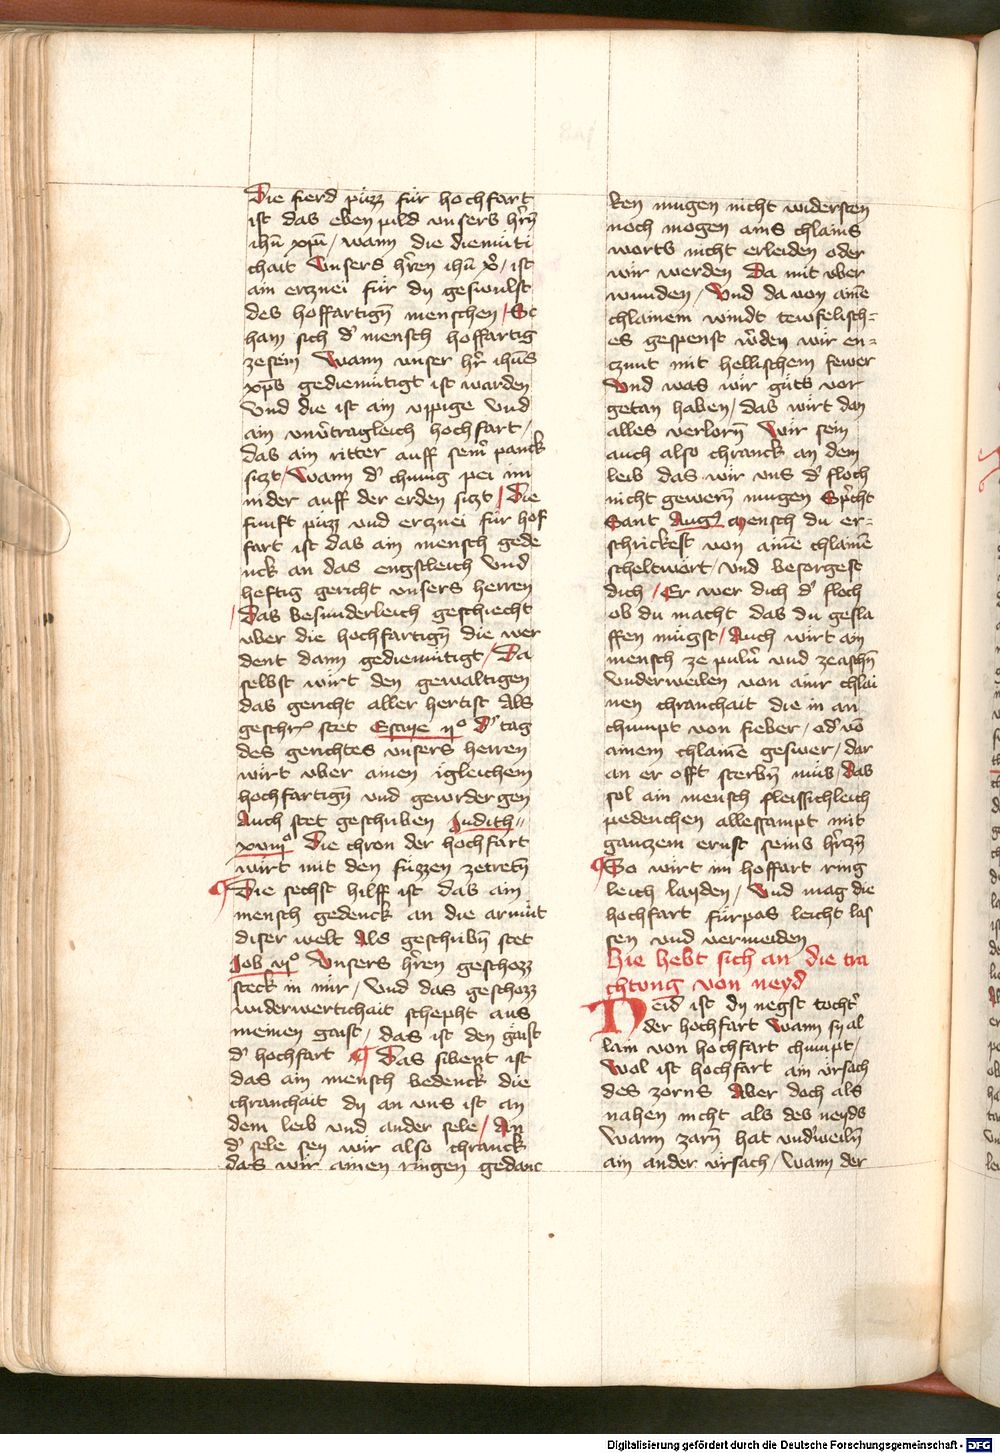 Die fierd püzz für hochfart
ist das eben pild vnsers hr̄n
ihū xpī / wann die diemüti
chait Vnsers hr̄en ihū xp̄ / ist
ain ercznei für dy geswulst
des hoffartign̄ menschen / Sc
ham sich d' mensch hoffartig
zesein Wann vnser hr̄ ihūs
xp̄s gediemütigt ist warden
Vnd die ist ain vppige Vnd
ain vnv̄tragleich hochfart /
das ain ritter auff seim̄ panck
siczt / Wann d' chunig pei im
nider auff der erden siczt / Die
funft püzz vnd ercznei für hof
fart ist das ain mensch gede
nck an das engstleich Vnd
heftig gericht vnsers herren
/ Das besunderleich geschiecht
vber die hochfartign̄ die wer
dent dann gediemütigt / Da
selbst wirt den gewaltigen
das gericht aller hertist Als
geschr̄ stet Esaye ijº D' tag
des gerichtes vnsers herren
wirt vber ainen igleichem
hochfartign̄ vnd gewrdergen
Auch stet geschriben Judith
xviijº Die chron der hochfart
wirt mit den füzzen zetretn̄
¶ Die sechst hilff ist das ain
mensch gedenck an die armüt
diser welt Als geschribn̄ stet
Job vjº Vnsers hr̄en geschozz
steck in mir / Vnd das geschozz
widerwertichait schepht aus
meinen gaist / das ist den gaist
d' hochfart ¶ Das sibent ist
das ain mensch bedenck die
chranchait dy an vns ist an
dem leib vnd ander sele / An
d' sele sey wir also chranck
das wir ainen ringen gedanc
ken mugen nicht widersten
noch mogen ains chlains
worts nicht erleiden oder
wir werden Da mit vber
wunden / Vnd da von aim̄e
chlainem windt tewfelisch=
es gespenst w̄den wir en=
czunt mit hellischem fewer
Vnd was wir güts vor
getan haben / das wirt dan
alles verlorn̄ Wir sein
auch also chranck an dem
leib das wir vns d' floch
nicht gewern̄ mugen Spr̄cht
Sant Aug⁹ Mensch du er=
schrickest von aim̄e chlaim̄e
scheltwort / Vnd besorgest
dich / Er wer dich d' floch
ob du macht das du gesla
ffen mügst / Auch wirt ain
mensch ze pulu' vnd zeaschn̄
Vnderweilen von ainr chlai
nen chranchait die in an
chumpt von fieber / od' vō
ainem chlaim̄e geswer / dar
an er offt sterbn̄ müs / das
sol ain mensch fleissichleich
pedenchen allessampt mit
ganczem ernst seins hr̄czn̄
¶ So wirt im hoffart ring
leich layden / Vnd mag die
hochfart fürpas leicht las
sen vnd vermeiden
Hie hebt sich an die tra
chtong von neyd
Neid ist dy negst tocht'
der hochfart Wann sy al
lain von hochfart chumpt /
Wol ist hochfart ain vrsach
des zorns Aber doch als
nahen nicht als des neyds
Wann zarn̄ hat vnd'weiln̄
ain ander vrsach / Wann der
Digitalisierung gefördert durch die Deutsche Forschungsgemeinschaft - DFG